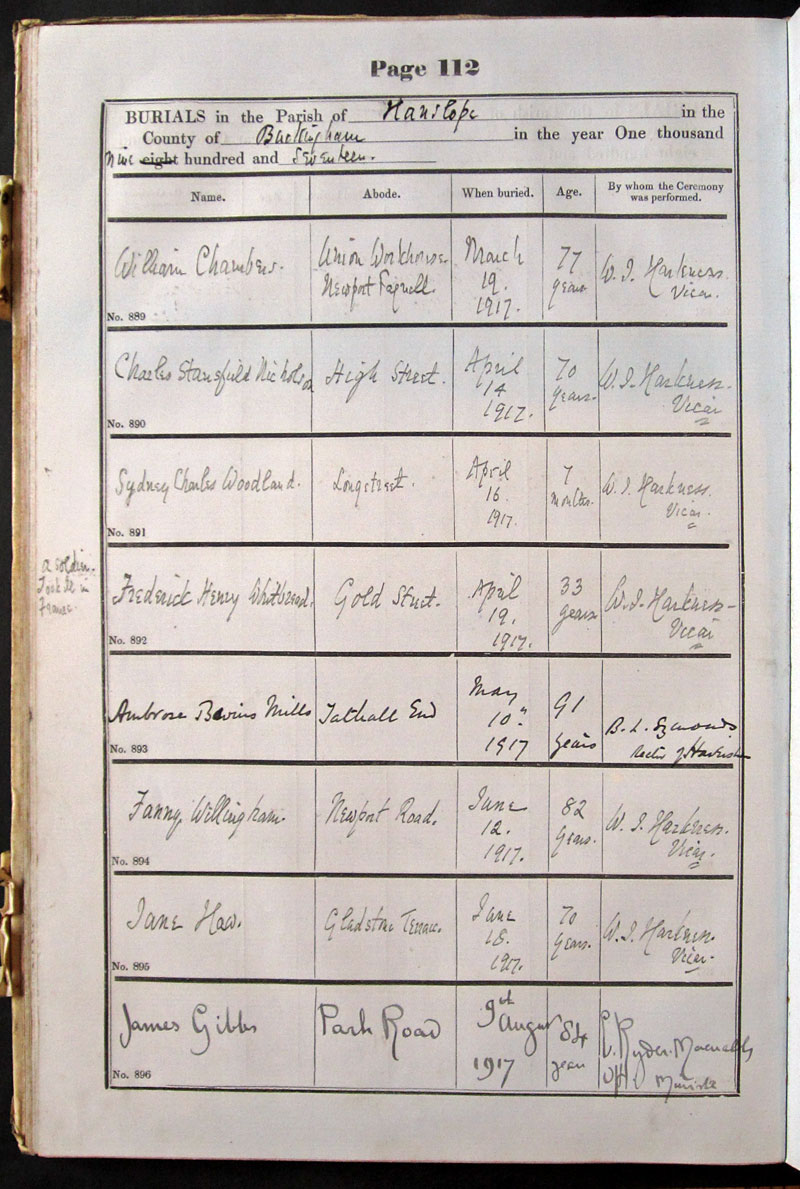 Page 112
BURIALS in the Parish of Hanslope in the
County of Buckingham in the year One thousand
Nine eight hundred and Seventeen.
Name. Abode. When buried. Age. By whom the Ceremony was performed.
William Chambers. Union Workhouse Newport Pagnell. March 19. 1917. 77 years W. J. Harkness. Vicar.
No. 889
Charles Stansfield Nicholson High Street. April 14 1917. 70 years. W. J. Harkness. Vicar
No. 890
Sydney Charles Woodland. Longstreet. April 16. 1917. 7 months. W. J. Harkness. Vicar.
No. 891
a soldier.
Took ill in
France.
Frederick Henry Whitbread. Gold Street. April 19. 1917. 33 years W. J. Harkness - Vicar
No. 892
Ambrose Bevins Mills Tathall End May 10th 1917 91 years B. L. Rector of
No. 893
Fanny Willingham. Newport Road. June 12. 1917. 82 years. W. J. Harkness. Vicar.
No. 894
Jane Haw. Gladstone Terrace. June 18. 1917. 70 years. W. J. Harkness. Vicar.
No. 895
James Gibbs Park Road 9th August 1917 84 years Ryder
No. 896